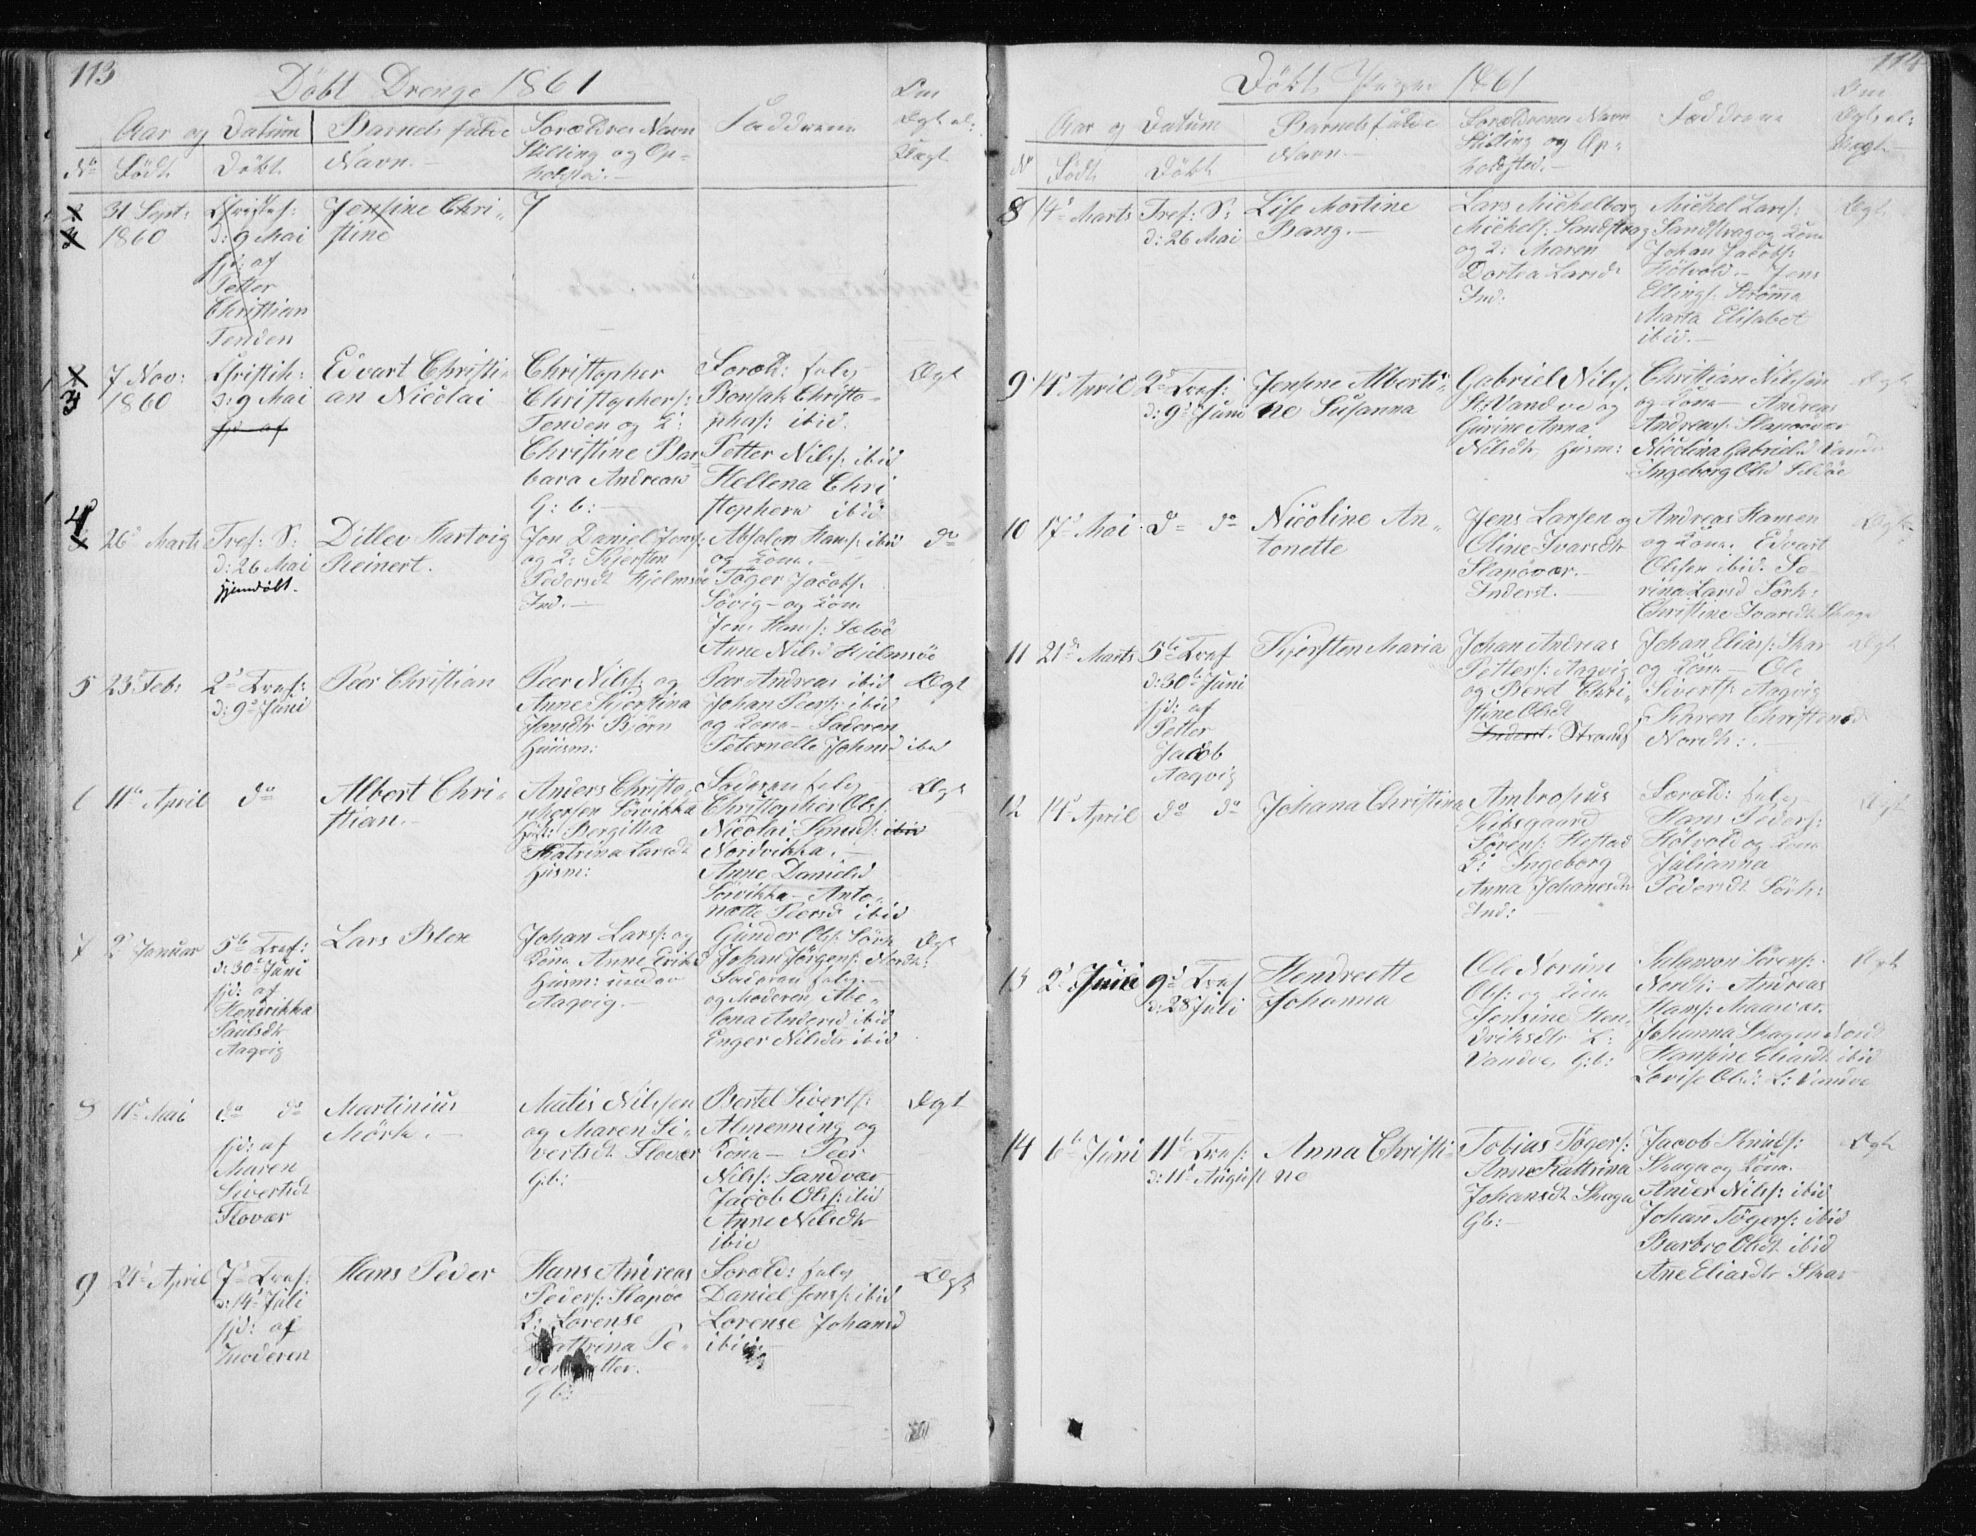 113
Döbt Drenge 1861
Aar og Datum
Barnets fulde
Navn.-
Forældres Navn
Stilling og Op-
holdsted.-
Fadderne
Om
Ægt el:
Uægt
No
Födt
Döbt
31 Sept:
1860
Christih:
d: 9 Mai
hjd: af
Petter
Christian
Tenden
Jensine Chri-
stine
3
7 Nov:
1860
Christih:
d: 9 Mai
hjd af
Edvart Christi-
an Nicolai
Christopher
Christophers:
Tenden og K:
Christine Bar-
bara Andreasd
G: b:-
Foræld: selv
Bonsak Christo-
phers: ibid.
Petter Nilss: ibid
Hellena Chri
stophersd ibid
Ægt
4
26 Marts
Tref: S:
d: 26 Mai
hjemdöbt.
Ditlev Hartvig
Reinert.
Jon Daniel Jons:
og K: Kjersten
Pedersdt Hjelmsöe
Ind.-
Absalon Hans: ibid
og Kone.-
Töger Jacobs:
Sövig- og Kone
Jens Hans: Sælöe
Anne Nilsd Hjelmsöe
do
5
23 Feb:
2d Tref:
d: 9d Juni
Peer Christian
Peer Nilss: og
Anne Kjerstina
Jonsdtr Björn
Huusm:
Peer Andreas ibid
Johan Peers: ibid
og Kona- Faderen
Peternelle Johnsd ibd
Ægt
6
11d April
do
Albert Chri-
stian.-
Anders Christo-
phersen Sörvikka
Hust: Bergitha
Katrina Larsdt
Husm:
Faderen selv
Christopher Ols:
Nicolai Knuds: ibid
Nordvikka.-
Anne Danielsd
Sörvikka- Anto-
nette Peersd ibid
Ægt
7
2d Januar
5te Tref:
d: 30d Juni
hjd: af
Hendrikka
Paulsdt
Aagvig
Lars Blex
Johan Lars: og
Kona Anne Eriksd
Husm: under
Aagvig.-
Günder Ols: Sörh
Johan Jörgens: Nordh:
Faderen selv.-
og Moderen Abe-
lona Andersd ibid
Enger Nilsdtr ibid
Ægt
8
11d Mai
do do
hjd: af
Maren
Sivertsdt
Flovær
Martinius
Mörk.-
Matis Nilssen
og Maren Si-
vertsdt Flovær
G:b:
Bertel Siverts:
Almenning og
Kona- Peer
Nilss: Sandvær
Jacob Ols: ibid
Anne Nilsdtr
ibid
Ægt
9
21d April
7d Tref:
d: 14d Juli
hjd: af
Moderen
Hans Peder
Hans Andreas
Peders: Slapöe
K: Lorense
Kattrina Pe-
dersdatter.
G b:
Foræld: selv
Daniel Jenss: ibid
Lorense Johansd
ibid.-
Ægt
114
Döbt Piger 1861
Aar og Datum
Barnets fulde
Navn.-
Forældrenes Navn
Stilling og Op-
holdsted.-
Fadderne
Om
Ægt el:
Uægt
No
Födt
Döbt
8
14d Marts
Tref: S:
d: 26 Mai
Lise Mortine
Bang.-
Lars Michelborg
Michels: Sandstrag
og K: Maren
Dortea Larsdt
Ind:
Michel Lars:
Sandstrag og Kone
Johan Jacobs:
Hölvold- Jens
Ellings: Strömma
Marta Elisabet
ibid.-
Ægt
9
14d April
2d Tref:
d: 9d Juni
Jensine Alberti-
ne Susanna
Gabriel Nilss.
St:Vandve og
Gurine Anna
Nilsdtr Husm:
Christian Nilssön
og Kona- Andreas
Andreas: Slapövær
Nicolina Gabrielsd Vandve
Ingeborg Olsd Seldöe
Ægt
10
17d Mai
do do
Nicoline An-
tonette
Jens Larsen og
Oline Ivarsdtr
Slapövær.-
Inderst.-
Andreas Hansen
og Kona. Edvart
Olssen ibid. Se-
rina Larsd Sörh:
Christine Ivarsdt Skaga
Ægt
11
21de Marts
5te Tref
d: 30te Juni
hjd: af
Petter
Jacob
Aagvig
Kjersten Maria
Johan Andreas
Petters: Aagvig
og Beret Chri-
stine Olsdt
Inderst. Strand
Johan Elias: Skar
og Kona- Ole
Siverts: Aagvig
Karen Christensd
Nordh:.-
Ægt
12
14d April
do do
Johana Christina
Ambrosius
Kibsgaard
Sörens: Hestad
K: Ingeborg
Anna Johanesdtr
Ind:
Foræld: selv
Hans Peders:
Hölvold og Kona
Julianna
Pedersdt Sörh:
Ægt
13
2d Juni
9d Tref
d: 28d Juli
Hendreette
Johanna
Ole Norum
Ols: og Kona
Jensine Hen-
driksdtr L:
Vandve, G:b:
Salamon Sörens:
Nordh: Andreas
Hans: Maasvær.
Johanna Skagen Nord
Hansine Eliasdt ibid
Lovise Olsd: L: Vandve
Ægt
14
6te Juni
11te Tref:
d: 11d August
Anna Christi-
ne
Tobias Tögers:
Anne Kattrina
Johansdt Skaga
Gb:-
Jacob Knuds:
Skaga og Kona.
Ander Nilss: ibid
Johan Tögers: ibid
Barbro Olsdt ibid
Ane Eliasdtr Skar
Ægt